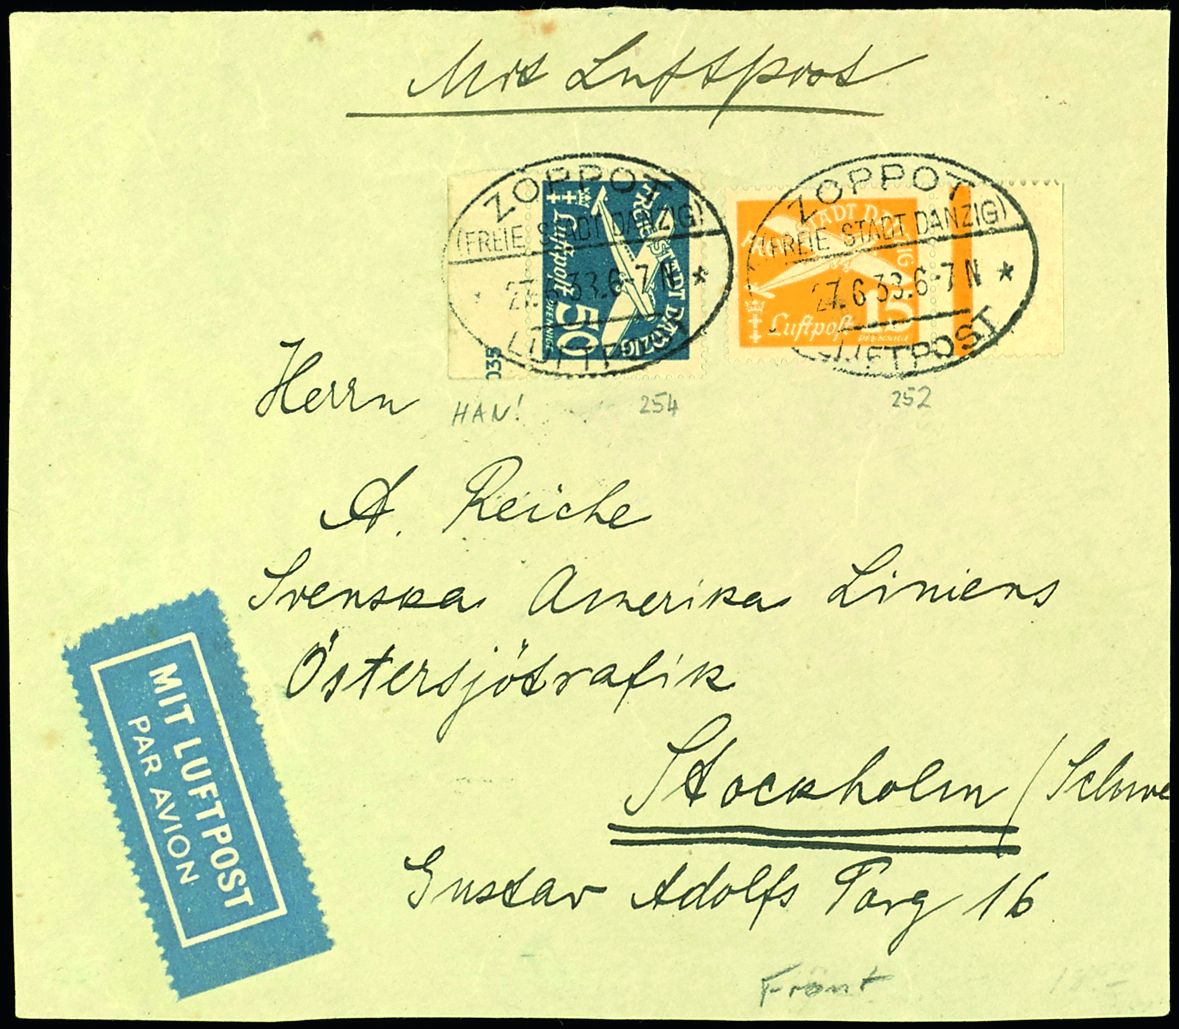 Mit Luftpost
ZOPPOT
(FREIE STADT DANZIG)
27.6.33.6-7 N *
LUFTPOST
FREIE STADT DANZIG
Luftpost
50
PFENNIGE
035
ZOPPOT
(FREIE STADT DANZIG)
27.6 33.6-7 N *
LUFTPOST
STADT DANZIG
Luftpost
15
PFENNIGE
HAN!
254
252
Herrn
A. Reiche
Svenska Amerika Liniens
Östersjötrafik
Stockholm (Schwe
Gustav Adolfs Torg 16
MIT LUFTPOST
PAR AVION
Front